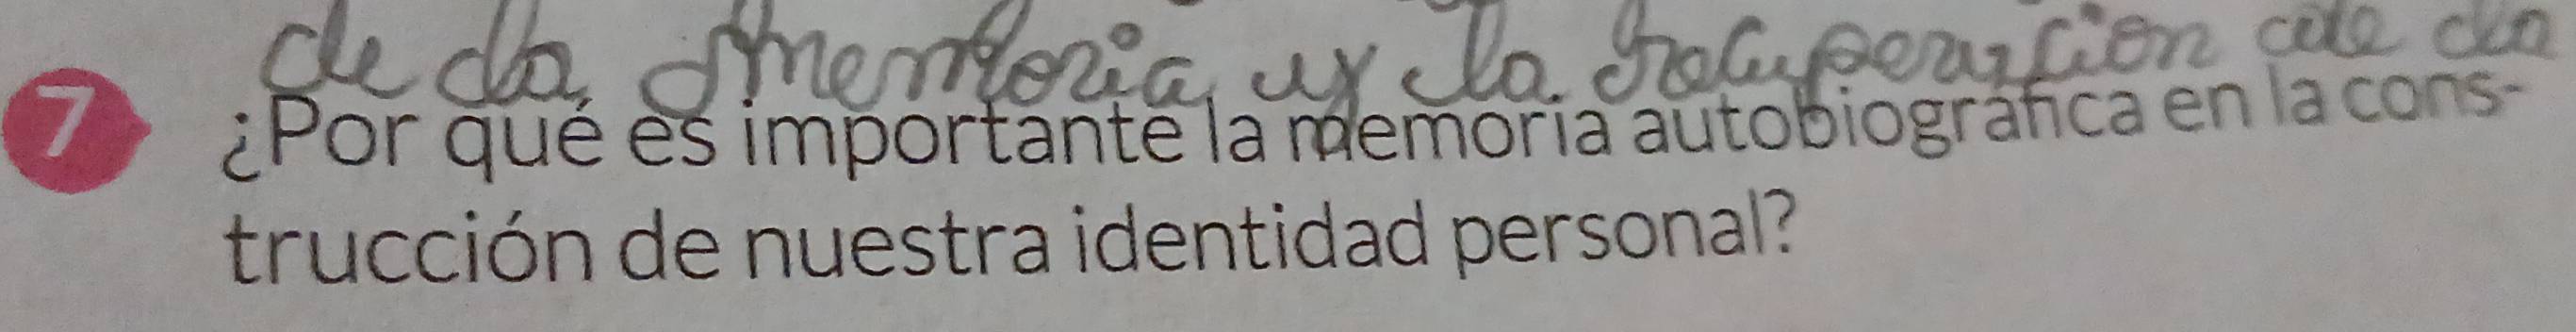 de la memoria y la recuperación de la
7 ¿Por qué es importante la memoria autobiográfica en la cons-
trucción de nuestra identidad personal?